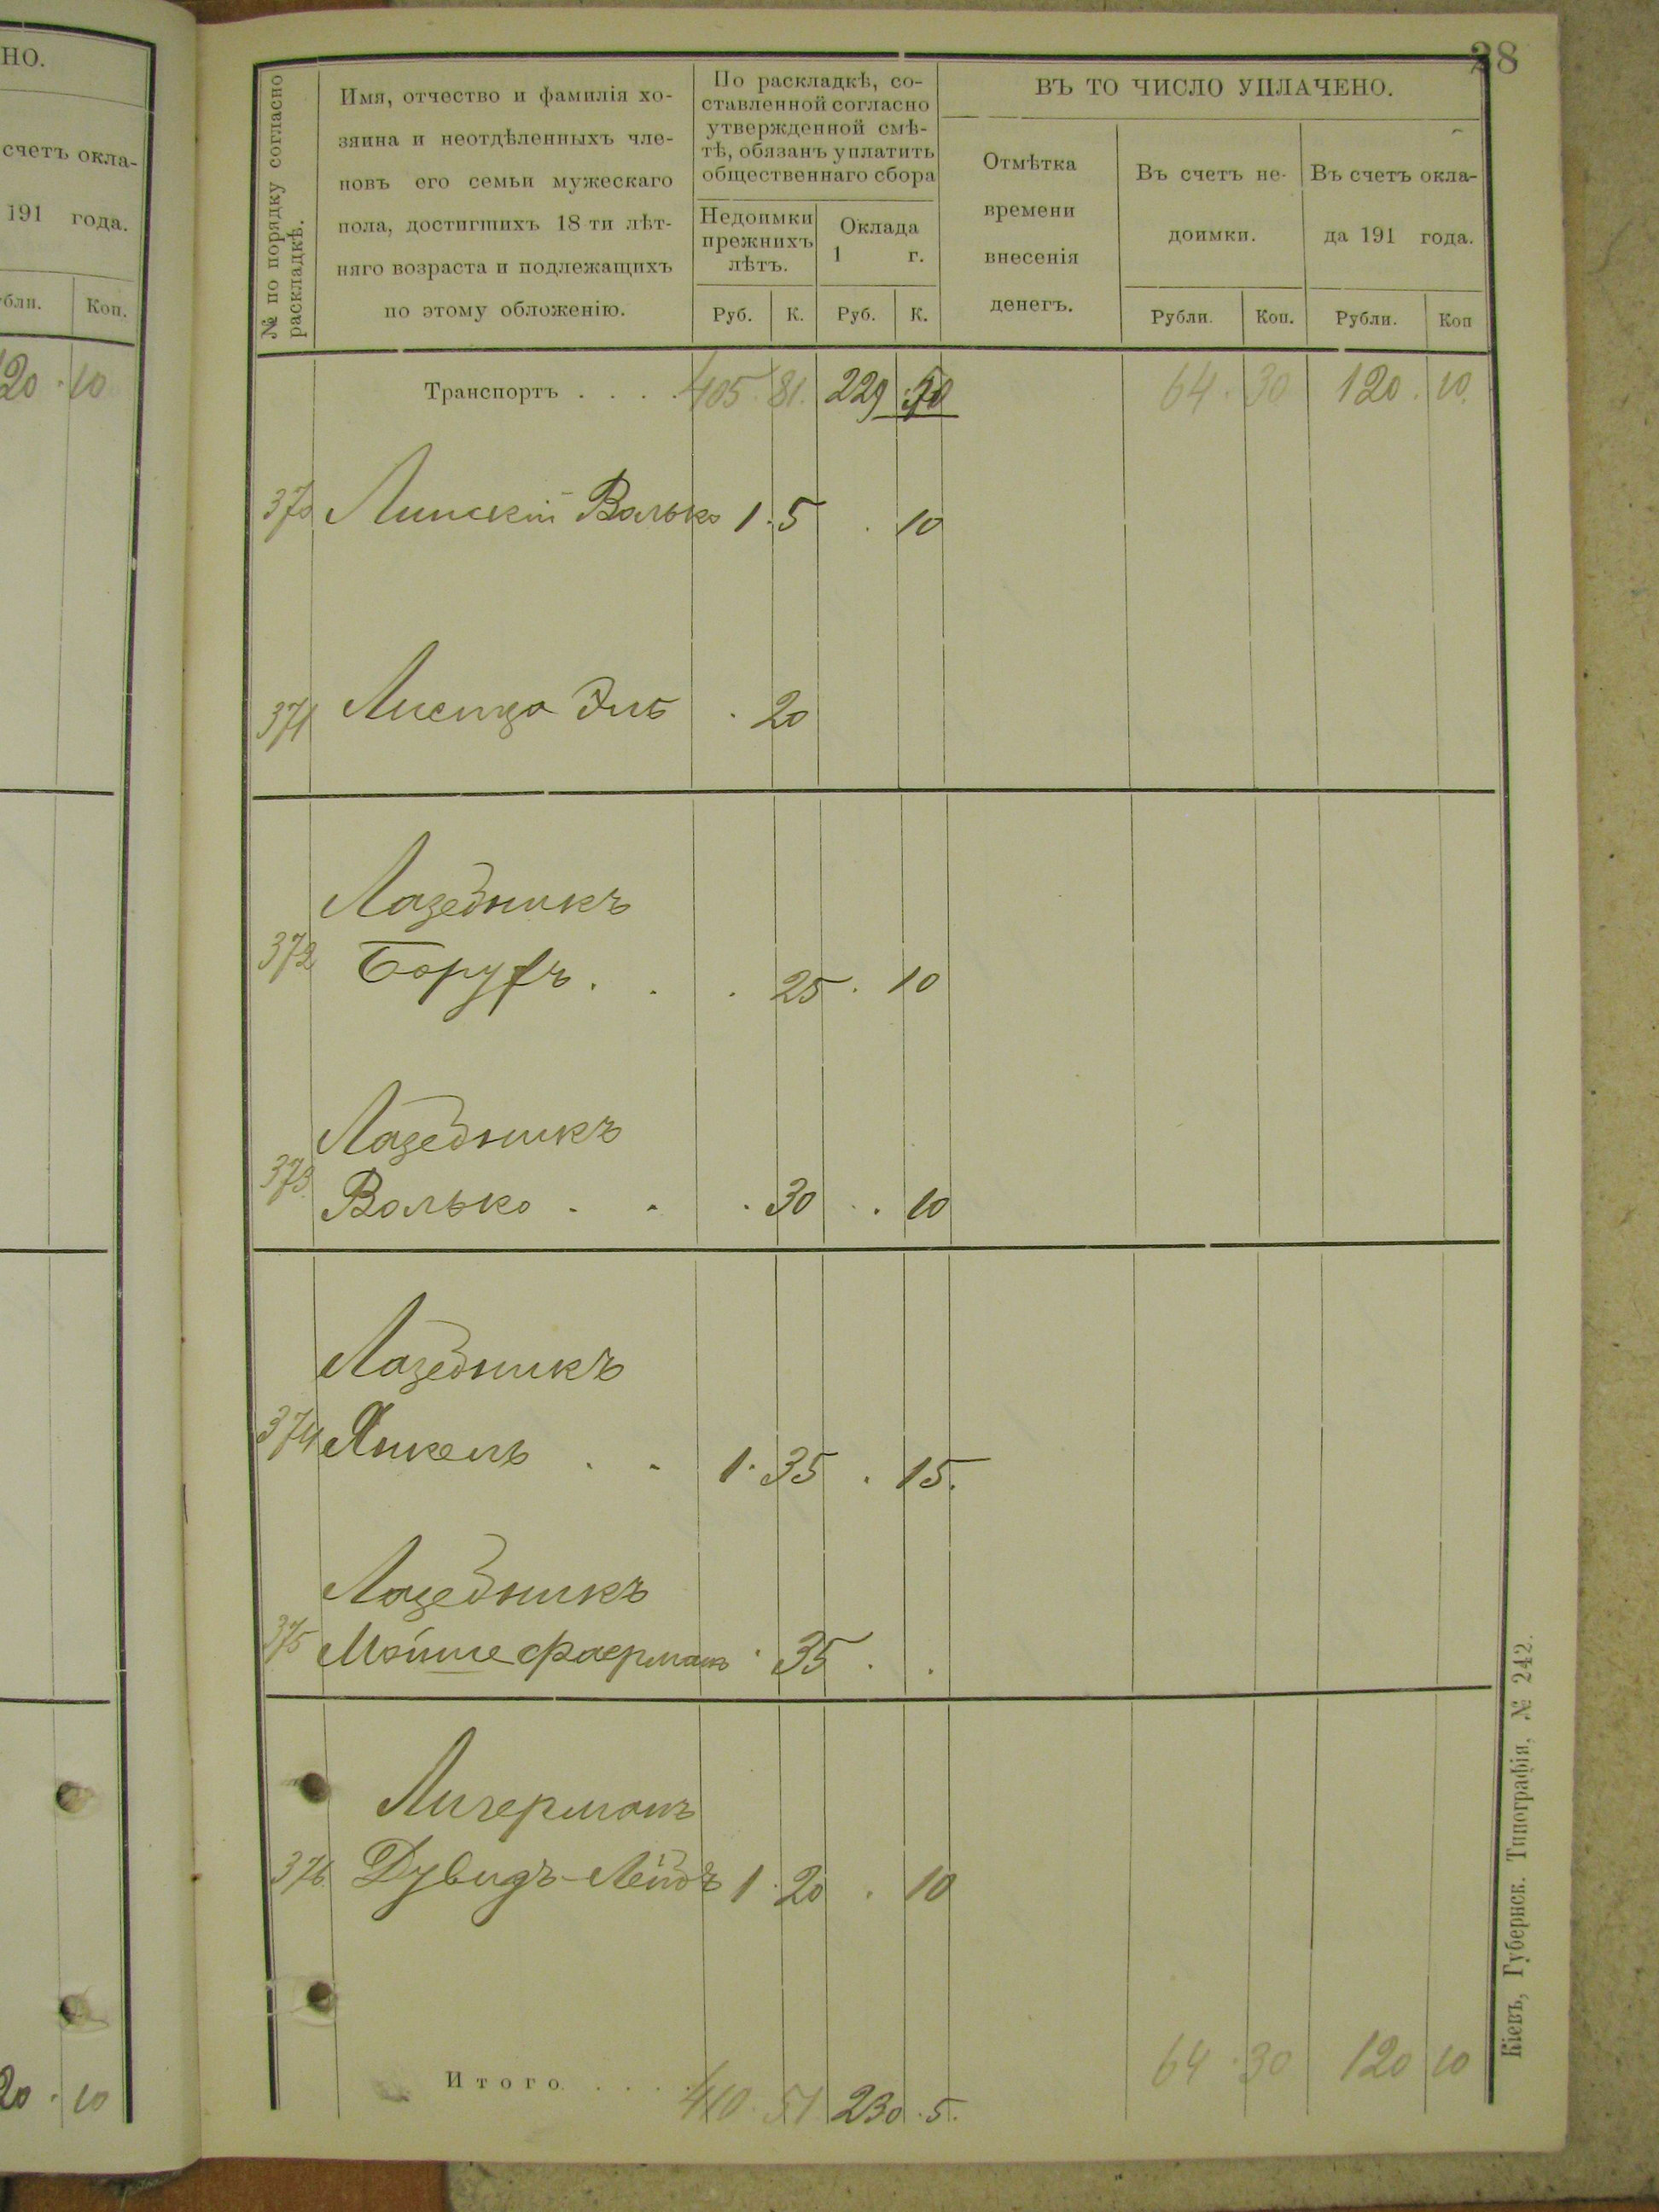 НО.
счетъ окла-
191 года.
Коп.
20 . 10
20 . 10
28
№ по порядку согласно
раскладкѣ.
Имя, отчество и фамилія хо-
зяина и неотдѣленныхъ чле-
новъ его семьи мужескаго
пола, достигшихъ 18-ти лѣт-
няго возраста и подлежащихъ
по этому обложенію.
По раскладкѣ, со-
ставленной согласно
утвержденной смѣ-
тѣ, обязанъ уплатить
общественнаго сбора
Недоимки
прежнихъ
лѣтъ.
Оклада
1 г.
Руб. К. Руб. К.
ВЪ ТО ЧИСЛО УПЛАЧЕНО.
Отмѣтка
времени
внесенія
денегъ.
Въ счетъ не-
доимки.
Въ счетъ окла-
да 191 года.
Рубли. Коп. Рубли. Коп
Транспортъ . . . . 405 . 81. 229 . 64 . 30 120 . 10.
370 Линскій Волько 1 . 5 . 10
371 Эль . 20
Лазебникъ
372 Борухъ . . . 25 . 10
Лазебникъ
373 Волько . . . 30 . . 10
Лазебникъ
374 Янкель . . 1 . 35 . 15.
Лазебникъ
375 Мойше Фаерманъ . 35 . .
Лигерманъ
376 Дувидъ-Лейбъ 1 . 20 . 10
Итого . . . . 410 . 51 230 . 5. 64 . 30 120 10
Кіевъ, Губернск. Типографія, № 242.